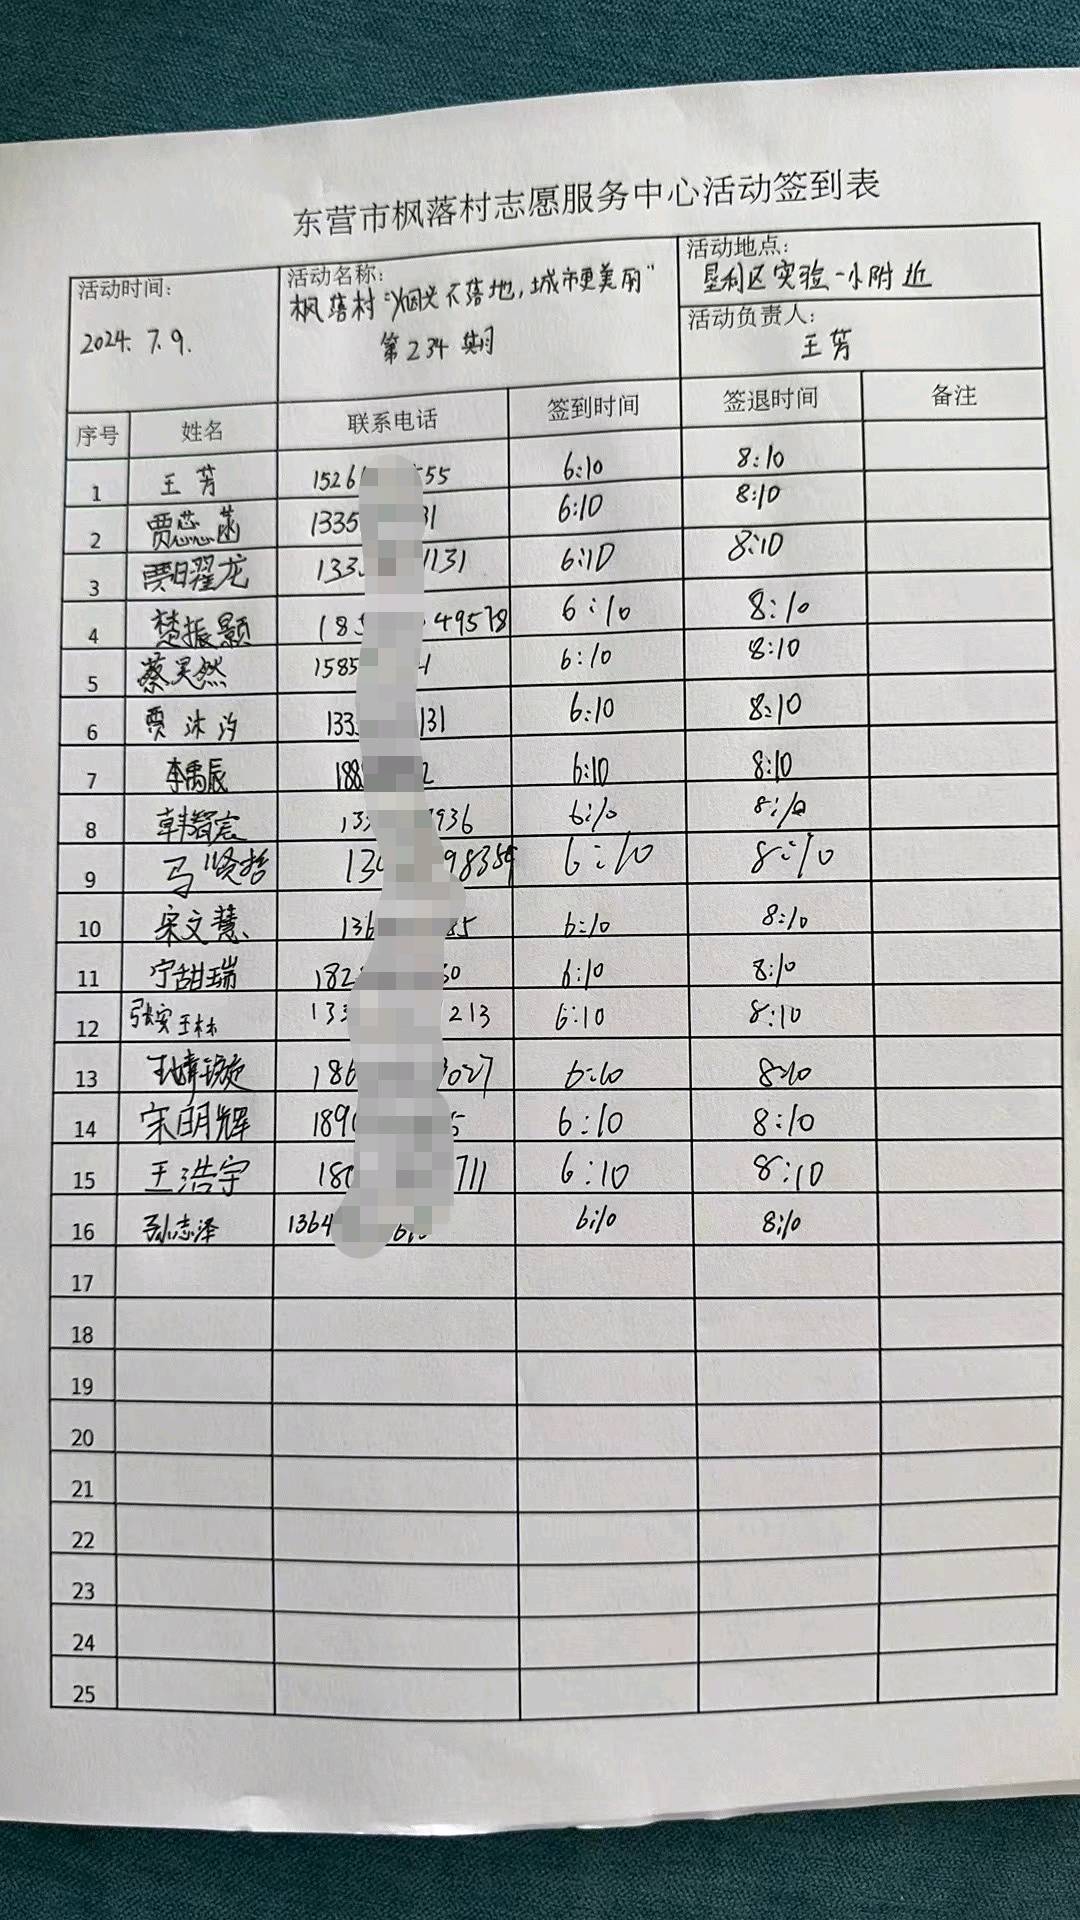 东营市枫落村志愿服务中心活动签到表
活动时间:
2024. 7. 9.
活动名称:
枫落村“烟头不落地,城市更美丽”
第234期
活动地点:
垦利区实验一小附近
活动负责人:
王芳
序号 姓名 联系电话 签到时间 签退时间 备注
1 王芳 1526 555 6:10 8:10
2 贾蕊菡 1335 31 6:10 8:10
3 贾曜龙 133 1131 6:10 8:10
4 楚振颢 185 49578 6:10 8:10
5 蔡昊然 1585 1 6:10 8:10
6 贾沐汐 133 131 6:10 8:10
7 李禹辰 188 2 6:10 8:10
8 韩智宸 133 7936 6:10 8:10
9 马贤哲 134 98359 6:10 8:10
10 宋文慧 136 85 6:10 8:10
11 宁甜瑞 182 50 6:10 8:10
12 张 133 213 6:10 8:10
13 王婧璇 186 3027 6:10 8:10
14 宋明辉 1890 5 6:10 8:10
15 王浩宇 180 711 6:10 8:10
16 孙志泽 1364 6:10 8:10
17
18
19
20
21
22
23
24
25